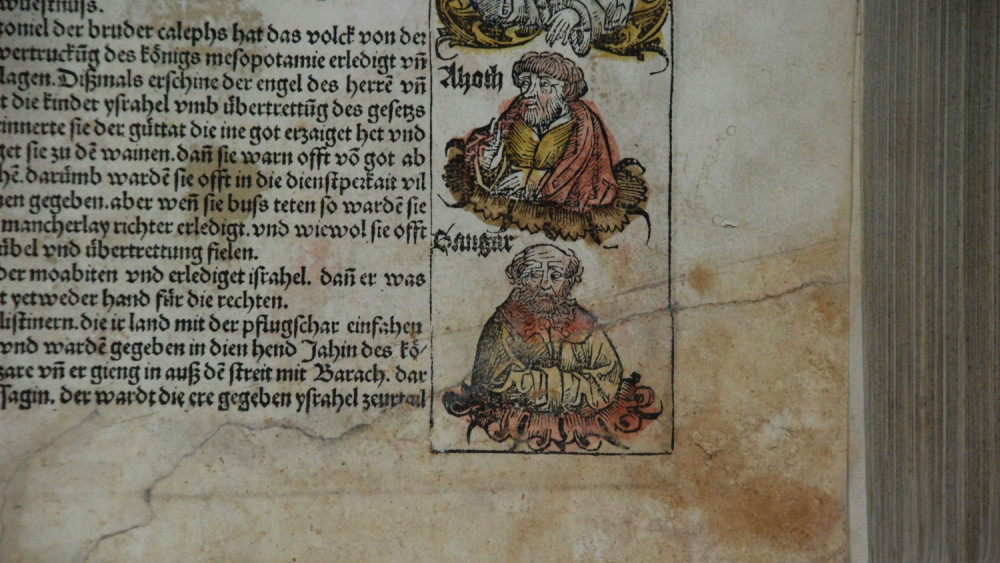 wuestnuß.
toniel der bruder calephs hat das volck von der
vertruckūg des kőnigs mesopotamie erledigt vñ
lagen. Dißmals erschine der engel des herrē vñ
t die kinder ysrahel vmb übertrettūg des gesetzs
rinnerte sie der gůttat die ine got erzaiget het vnd
get sie zu dē wainen. dañ sie warn offt võ got ab
hē. darūmb wardē sie offt in die dienstperkait vil
zen gegeben. aber weñ sie buss teten so wardē sie
mancherlay richter erledigt. vnd wiewol sie offt
übel vnd übertrettung fielen.
der moabiten vnd erlediget israhel. dañ er was
t yetweder hand für die rechten.
listinern. die ir land mit der pflugschar einfahen
vnd wardē gegeben in dien hend Jahin des kő/
zare vñ er gieng in auß dē streit mit Barach. dar
Jagin. der wardt die ere gegeben ysrahel zeurtail
Ahoth
Sangar